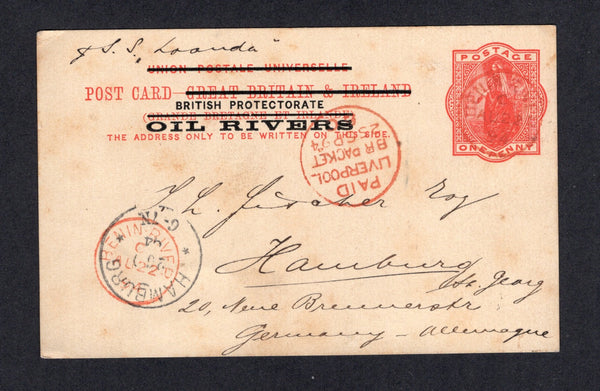 S.S. Loanda
UNION POSTALE UNIVERSELLE
POST CARD GREAT BRITAIN & IRELAND
BRITISH PROTECTORATE
(GRANDE BRETAGNE ET IRLANDE)
OIL RIVERS
THE ADDRESS ONLY TO BE WRITTEN ON THIS SIDE.
POSTAGE
ONE PENNY
PAID
LIVERPOOL
BR PACKET
BENIN RIVER
HAMBURG
Esq
Hamburg
St. Georg
20, Neue Brennerstr
Germany - Allemagne